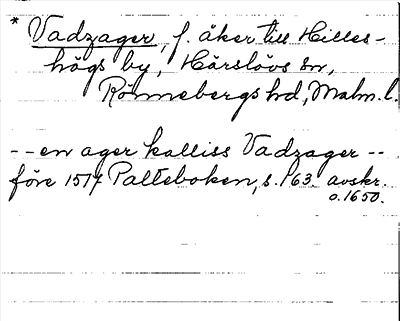 * Vadzager, f. åker till Hilles-
högs by, Härslövs sn,
Rönnebergs hd, Malm. l.
-- en ager kalliss Vadzager --
före 1517 Palteboken, s. 163. avskr.
o. 1650.